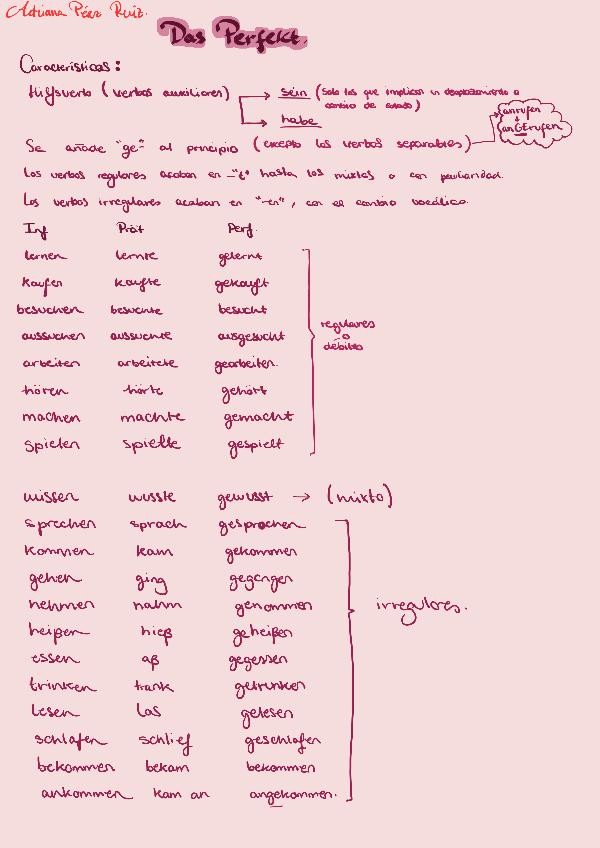 Adriana Pérez Ruiz.
Das Perfekt.
Características:
Hilfsverb (verbos auxiliares) → sein (solo los que implican un desplazamiento o cambio de estado)
→ habe
Se añade "ge-" al principio (excepto los verbos separables) → anrufen
↓
anGErufen
Los verbos regulares acaban en -"t" hasta los mixtos o con peculiaridad.
Los verbos irregulares acaban en "-en", con el cambio vocálico.
Inf Prät Perf.
lernen lernte gelernt
kaufen kaufte gekauft
besuchen besuchte besucht
aussuchen aussuchte ausgesucht
arbeiten arbeitete gearbeiten.
hören hörte gehört
machen machte gemacht
spielen spielte gespielt
regulares
o
débiles
wissen wusste gewusst → (mixto)
sprechen sprach gesprochen
kommen kam gekommen
gehen ging gegangen
nehmen nahm genommen
heißen hieß geheißen
essen aß gegessen
trinken trank getrunken
lesen las gelesen
schlafen schlief geschlafen
bekommen bekam bekommen
ankommen kam an angekommen.
irregulares.